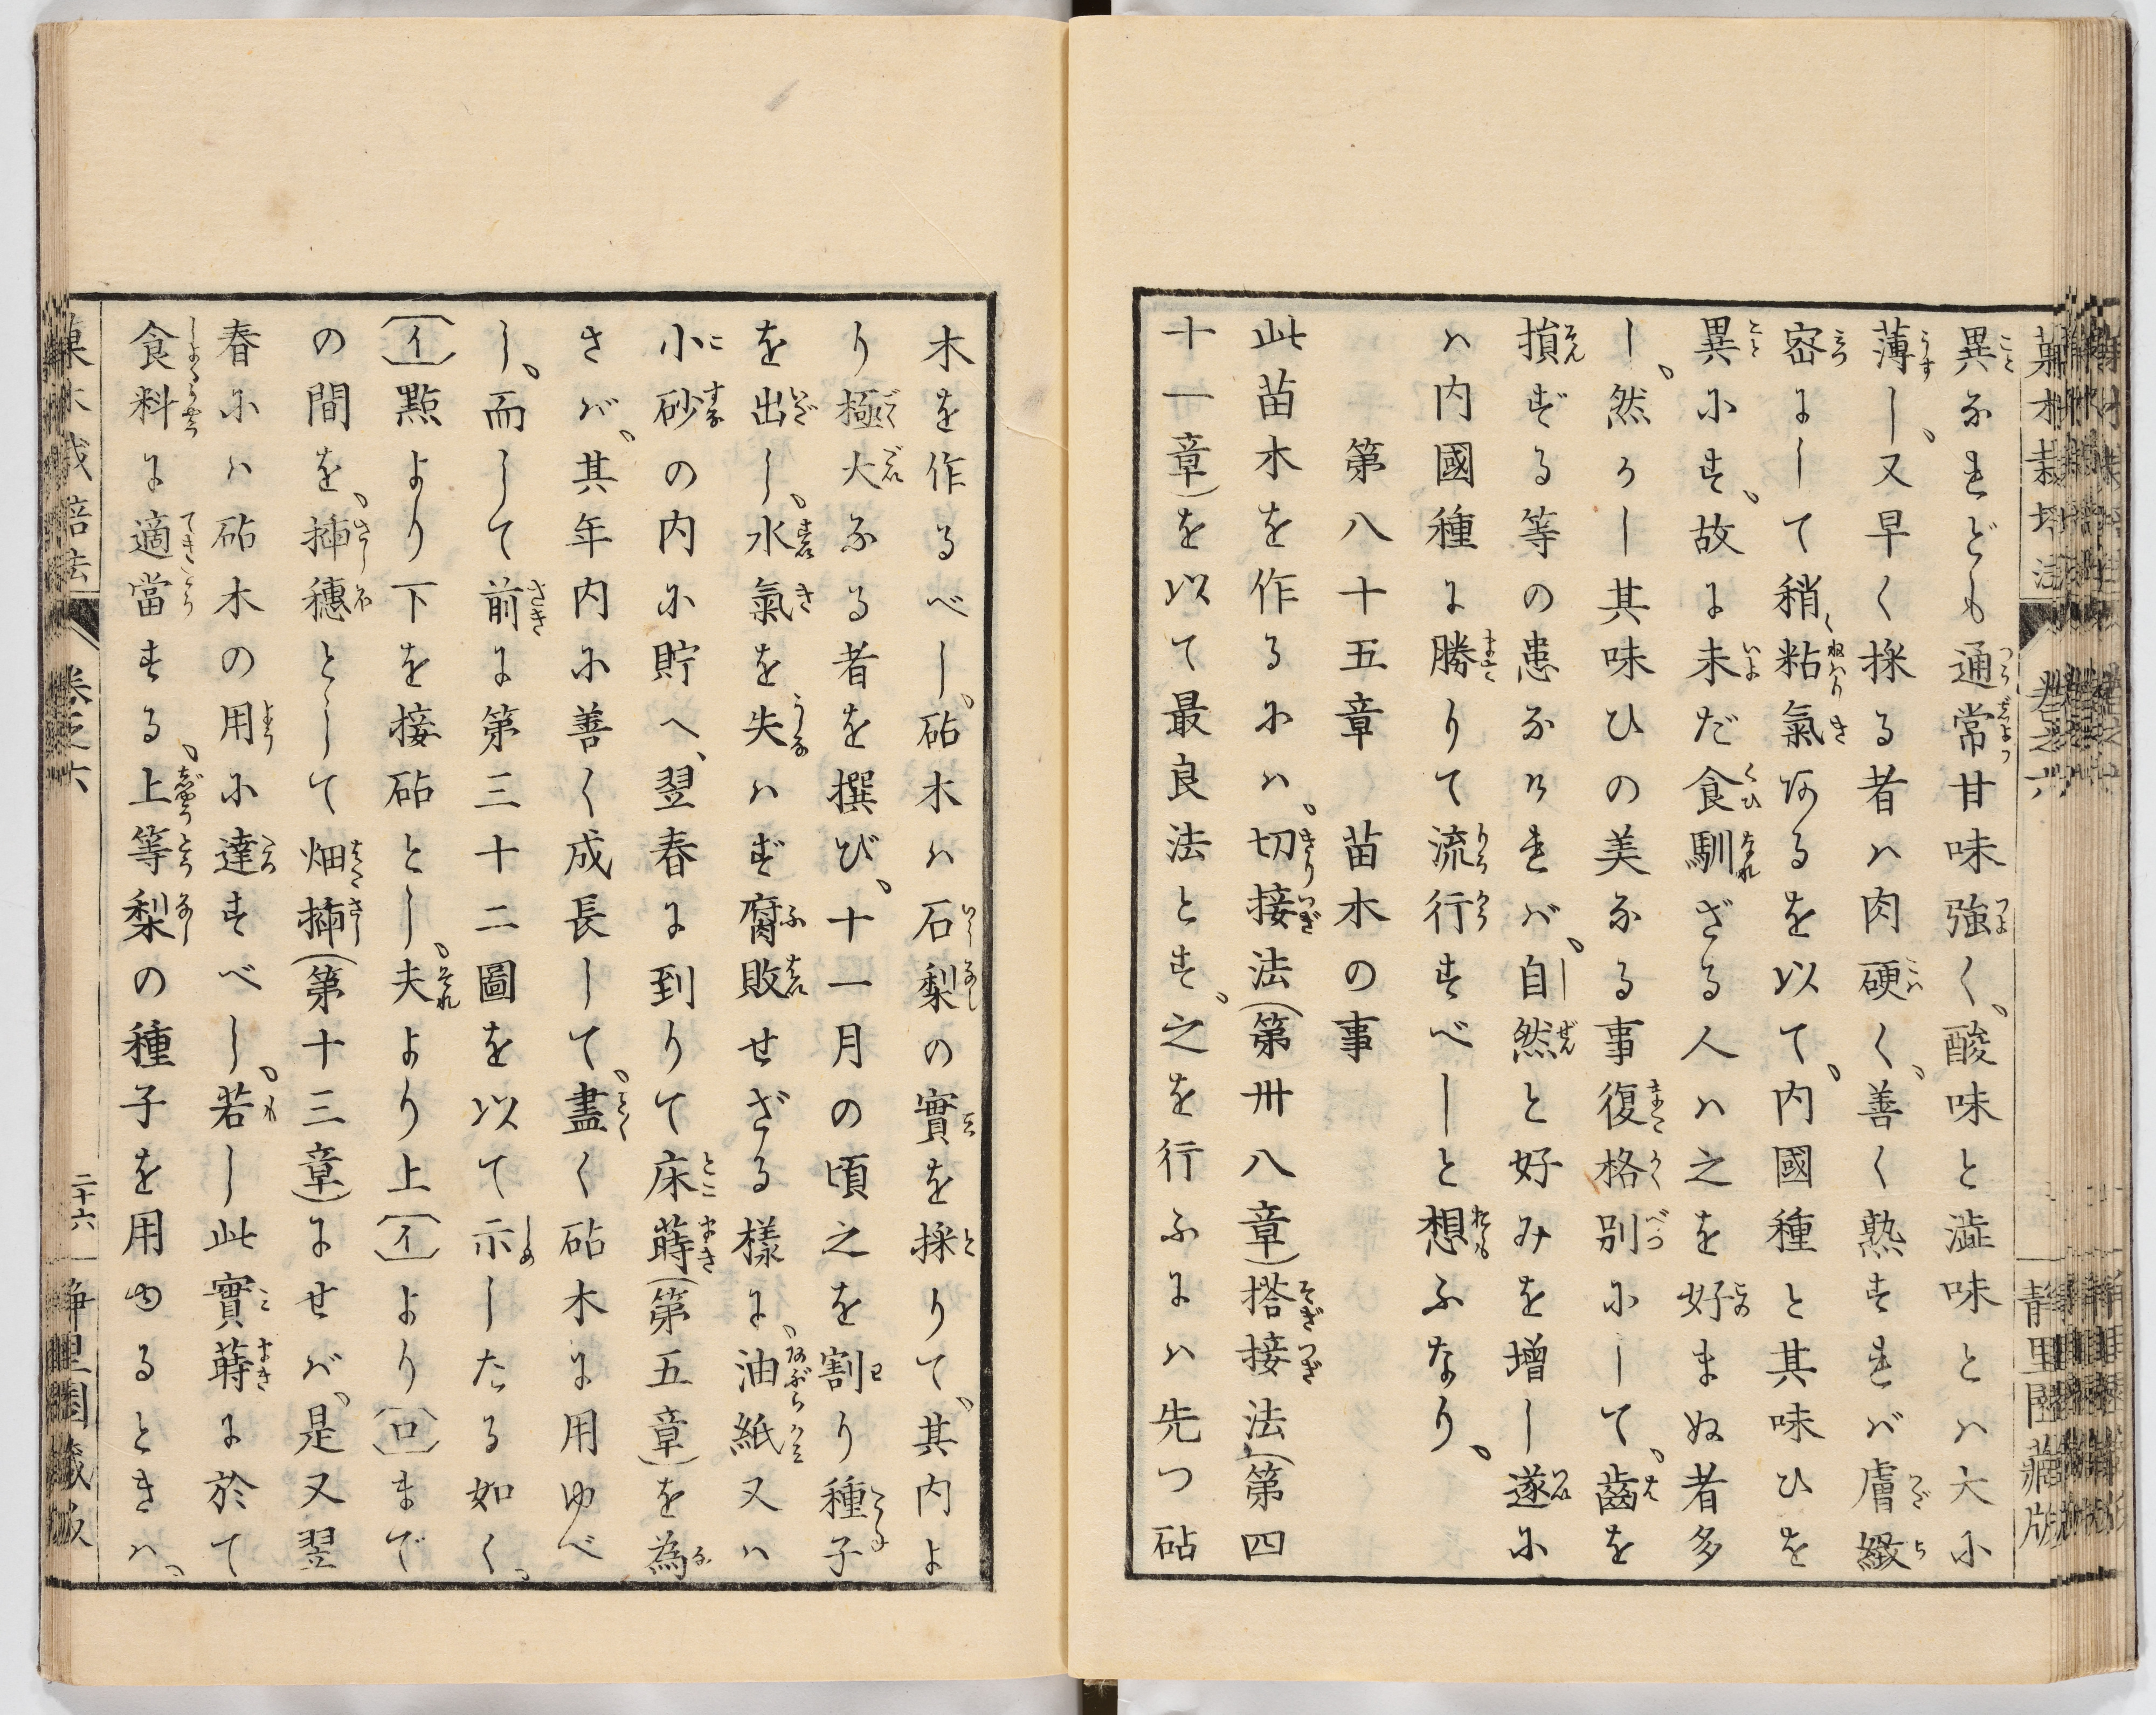 異なれども通常甘味強く、酸味と澁味とハ大に
薄し、又早く採る者ハ肉硬く、善く熟すれバ膚緻
密にして稍粘氣あるを以て、内國種と其味ひを
異にす、故に未だ食馴ざる人ハ之を好まぬ者多
し、然らし其味ひの美なる事復格別にして、齒を
損ずる等の患なけれバ、自然と好みを增し遂に
ハ内國種に勝りて流行すべしと想ふなり、
第八十五章　苗木の事
此苗木を作るにハ、切接法(第卅八章)搭接法(第四
十一章)を以て最良法とす、之を行ふにハ先つ砧
木を作るべし、砧木ハ石梨の實を採りて、其内よ
り極大なる者を撰び、十一月の頃之を割り種子
を出し、水氣を失ハず腐敗せざる樣に、油紙又ハ
小砂の内に貯へ、翌春に到りて床蒔(第五章)を為
さバ、其年内に善く成長して、盡く砧木に用ゆべ
し、而して前に第三十二圖を以て示したる如く、
〔イ〕點より下を接砧とし、夫より上〔イ〕より〔ロ〕まで
の間を、挿穗として畑挿(第十三章)にせバ、是又翌
春にハ砧木の用に達すべし、若し此實蒔に於て
食料に適當する、上等梨の種子を用ゆるときハ、
菓木栽培法　卷之六　二十六　靜里園藏版